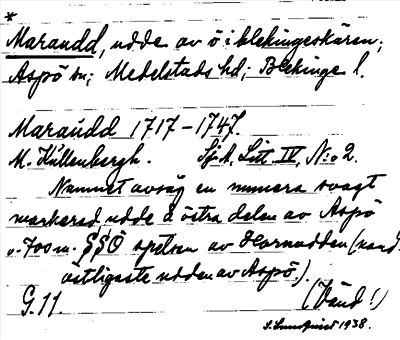 *
Maraudd, udde av ö i blekingeskären;
Aspö sn; Medelstads hd; Blekinge l.
Maraüdd 1717–1747.
M. Küllenbergh. Sj. A. Litt. IV, N:o 2.
Namnet avsåg en numera svagt
markerad udde å östra delen av Aspö
c. 700 m. SSÖ spetsen av Hornudden (
östligaste udden av Aspö.).
G.11. (Vänd!)
S. Lundquist 1938.